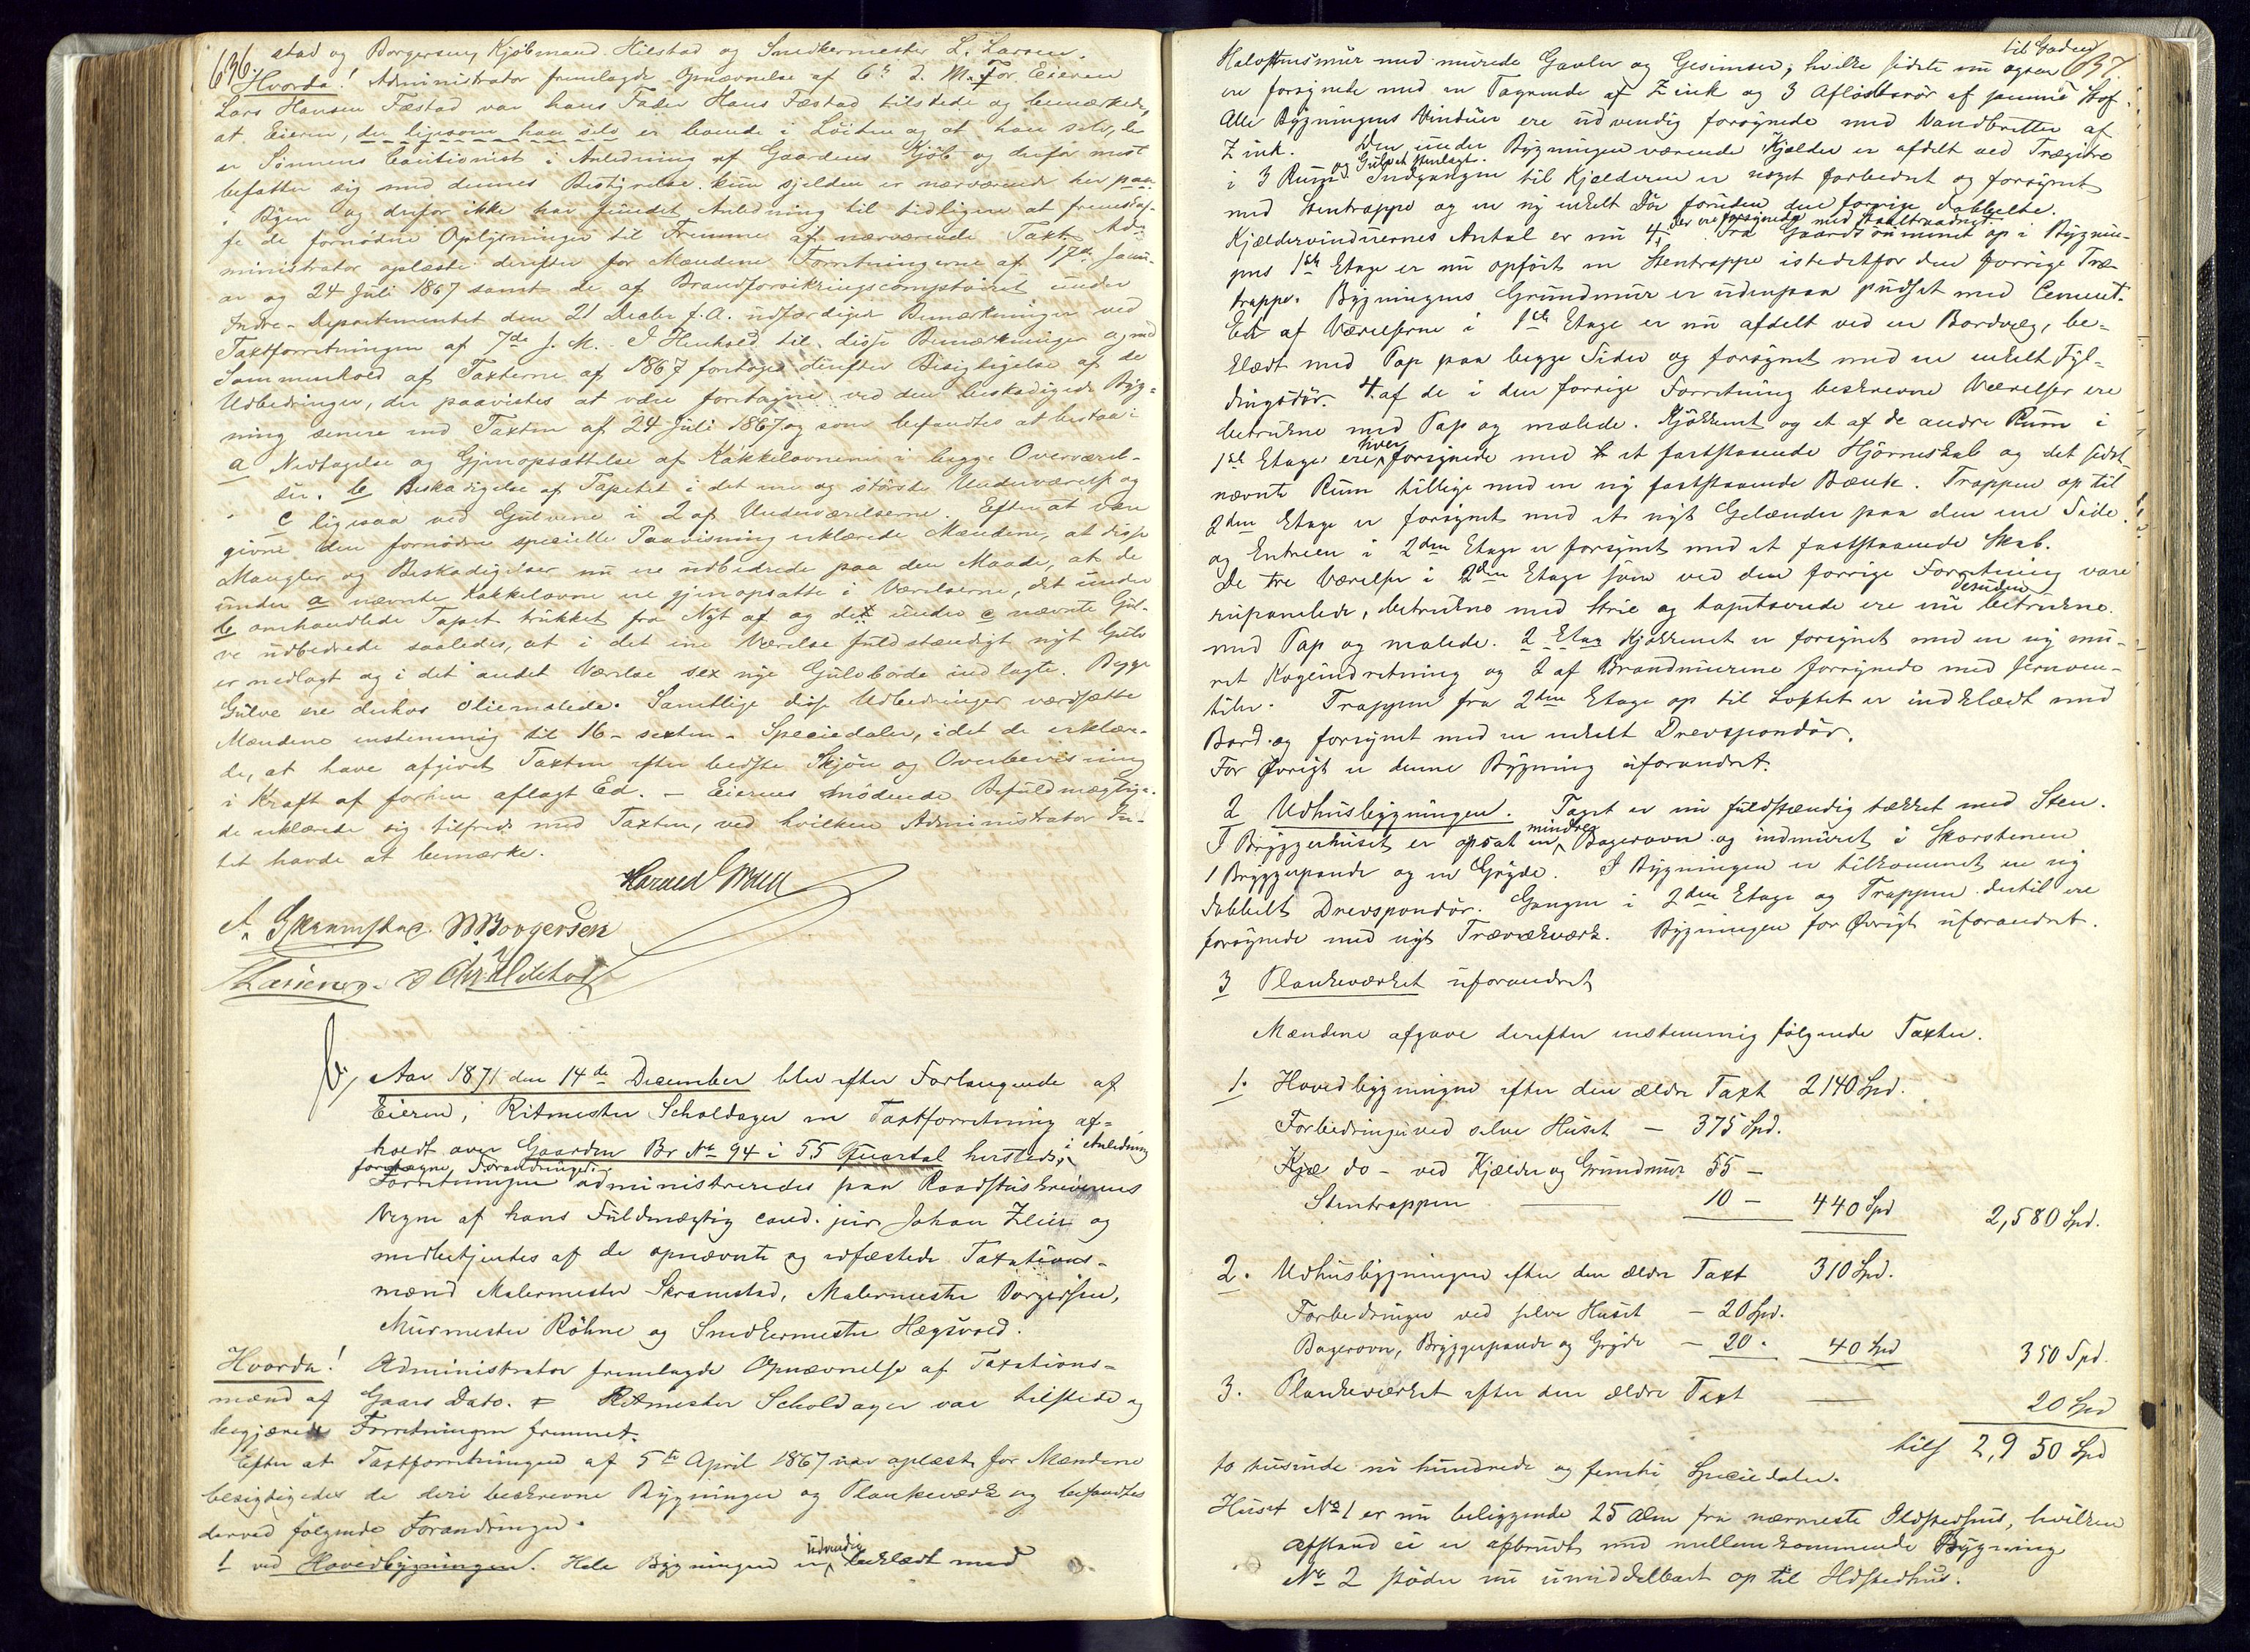 636.
stad og Borgersen, Kjøbmand Hilstad og Snedkermester L. Larsen.
Hvorda! Administrator fremlagde Opnævnelse af 6te d. M. For Eieren
Lars Hansen Fæstad var hans Fader Hans Fæstad tilstede og bemærkede,
at Eieren, der ligesom han selv er boende i Löiten og at han selv, der
er Sønnens Cautionist i Anledning af Gaardens Kjøb og derfor mest
befatter sig med dennes Bestyrelse kun sjelden er nærværende her paa
i Byen og derfor ikke har fundet Anledning til tidligere at fremskaf-
fe de fornødne Oplysninger til Fremme af nærværende Taxt. Ad-
ministrator oplæste derefter for Mændene Forretningerne af 17de Janu-
ar og 24 Juli 1867 samt de af Brandforsikringscomptoiret under
Indre-Departementet den 21 Decbr f. A. udfærdigede Bemærkninger ved
Taxtforretningen af 7de s. M. I Henhold til disse Bemærkninger og med
Sammenhold af Taxterne af 1867 foretoges derefter Besigtigelse af de
Udbedringer, der paavistes at være foretagne ved den beskadigede Byg-
ning senere end Taxten af 24 Juli 1867 og som befandtes at bestaa i
a Nedtagelse og Gjenopsættelse af Kakkelovnene i begge Overværel-
ser. b Beskadigelse af Tapetet i det ene og største Underværelse og
c ligesaa ved Gulvene i 2 af Underværelserne. Efter at være
givne den fornødne specielle Paavisning erklærede Mændene, at disse
Mangler og Beskadigelser nu ere udbedrede paa den Maade, at de
under a nævnte Kakkelovne ere gjenopsatte i Værelserne, det under
b omhandlede Tapet trukket fra Nyt af og de under c nævnte Gul-
ve udbedrede saaledes, at i det ene Værelse fuldstændigt nyt Gulv
er nedlagt og i det andet Værelse sex nye Gulvborde indlagte. Begge
Gulve ere derhos oliemalede. Samtlige disse Udbedringer værdsatte
Mændene enstemmig til 16 - sexten - Speciedaler, idet de erklære-
de, at have afgivet Taxten efter bedste Skjøn og Overbevisning
i Kraft af forhen aflagt Ed. - Eierens mødende Befuldmægtige-
de erklærede sig tilfreds med Taxten, ved hvilken Administrator In-
tet havde at bemærke.
Harald
A. Skramstad. Borgersen
L Larsen Chr. Hilstad
Aar 1871 den 14de December blev efter Forlangende af
Eieren, Ritmester Scholdager en Taxtforretning af-
holdt over Gaarden Br No 94 i 55 Quartal hersteds, i Anledning
foretagne Forandringer.
Forretningen administreredes paa Raadstuskriverens
Vegne af hans Fuldmægtig cand. jur. Johan Zeier og
medbetjentes af de opnævnte og edfæstede Taxations-
mænd Malermester Skramstad, Malermester Borgersen,
Murmester Röhne og Snedkermester Hægsvold.
Hvorda! Administrator fremlagde Opnævnelse af Taxations-
mænd af Gaars Dato. Ritmester Scholdager var tilstede og
begjærede Forretningen fremmet.
Efter at Taxtforretningen af 5te April 1867 var oplæst for Mændene
besigtigedes de deri beskrevne Bygninger og Plankeværk og befandtes
derved følgende Forandringer.
1 ved Hovedbygningen. Hele Bygningen er udvendig beklædt med
637.
Halvstensmur med murede Gavler og Gesimser, hvilke sidste nu ogsaa til Gaden
ere forsynede med en Tagrende af Zink og 3 Aflöbsrör af samme Stof.
Alle Bygningens Vinduer ere udvendig forsynede med Vandbretter af
Zink. Den under Bygningen værende Kjælder er afdelt ved Trægitre
i 3 Rum og Gulvet stenlagt. Indgangen til Kjælderen er noget forbedret og forsynet
med Stentrappe og en ny enkelt Dör foruden den forrige dobbelte.
Kjældervinduernes Antal er nu 4, der ere forsynede med Staaltraadnet. Fra Gaardsrummet op i Bygnin-
gens 1ste Etage er nu opført en Stentrappe istedetfor den forrige Træ-
trappe. Bygningens Grundmur er udenpaa pudset med Cement.
Et af Værelserne i 1ste Etage er nu afdelt ved en Bordvæg, be-
klædt med Pap paa begge Sider og forsynet med en enkelt Fyl-
dingsdör. 4 af de i den forrige Forretning beskrevne Værelser ere
betrukne med Pap og malede. Kjökkenet og et af de andre Rum i
1ste Etage ere hver forsynede med et fastsstaaende Hjörneskab og det sidst-
nævnte Rum tillige med en ny faststaaende Bænk. Trappen op til
2den Etage er forsynet med et nyt Gelænder paa den ene Side
og Entreen i 2den Etage er forsynet med et faststaaende Skab.
De tre Værelser i 2den Etage som ved den forrige Forretning vare
rupanelede, betrukne med Strie og tapetserede ere nu desuden betrukne
med Pap og malede. 2 Etag Kjøkkenet er forsynet med en ny mu-
ret Kogeindretning og 2 af Brandmurene forsynede med Jernven-
tiler. Trappen fra 2den Etage op til Loftet er indklædt med
Bord og forsynet med en enkelt Drevspondör.
For Øvrigt er denne Bygning uforandret.
2 Udhusbygningen. Taget er nu fuldstændig tækket med Sten.
I Bryggerhuset er opsat en mindre Bagerovn og indmuret i Skorstenen
1 Bryggepande og en Gryde. I Bygningen er tilkommet en ny
dobbelt Drevspondör. Gangen i 2den Etage og Trappen dertil ere
forsynede med nyt Træværk. Bygningen for Øvrigt uforandret.
3 Plankeværket uforandret
Mændene afgave derefter enstemmig følgende Taxter.
1. Hovedbygningen efter den ældre Taxt 2140 Spd.
Forbedringer ved selve Huset - 375 Spd.
Kjæ do - ved Kjælder og Grundmur 55 -
Stentrappen 10 - 440 Spd 2,580 Spd.
2. Udhusbygningen efter den ældre Taxt 310 Spd.
Forbedringer ved selve Huset - 20 Spd.
Bagerovn, Bryggepande og Gryde - 20 - 40 Spd 350 Spd.
3. Plankeværket efter den ældre Taxt 20 Spd
tils 2,950 Spd
to tusinde ni hundrede og femti Speciedaler.
Huset No 1 er nu beliggende 25 Alen fra nærmeste Ildstedhus, hvilken
Afstand ei er afbrudt med mellemkommende Bygning
No 2 støder nu umiddelbart op til Ildstedhus.